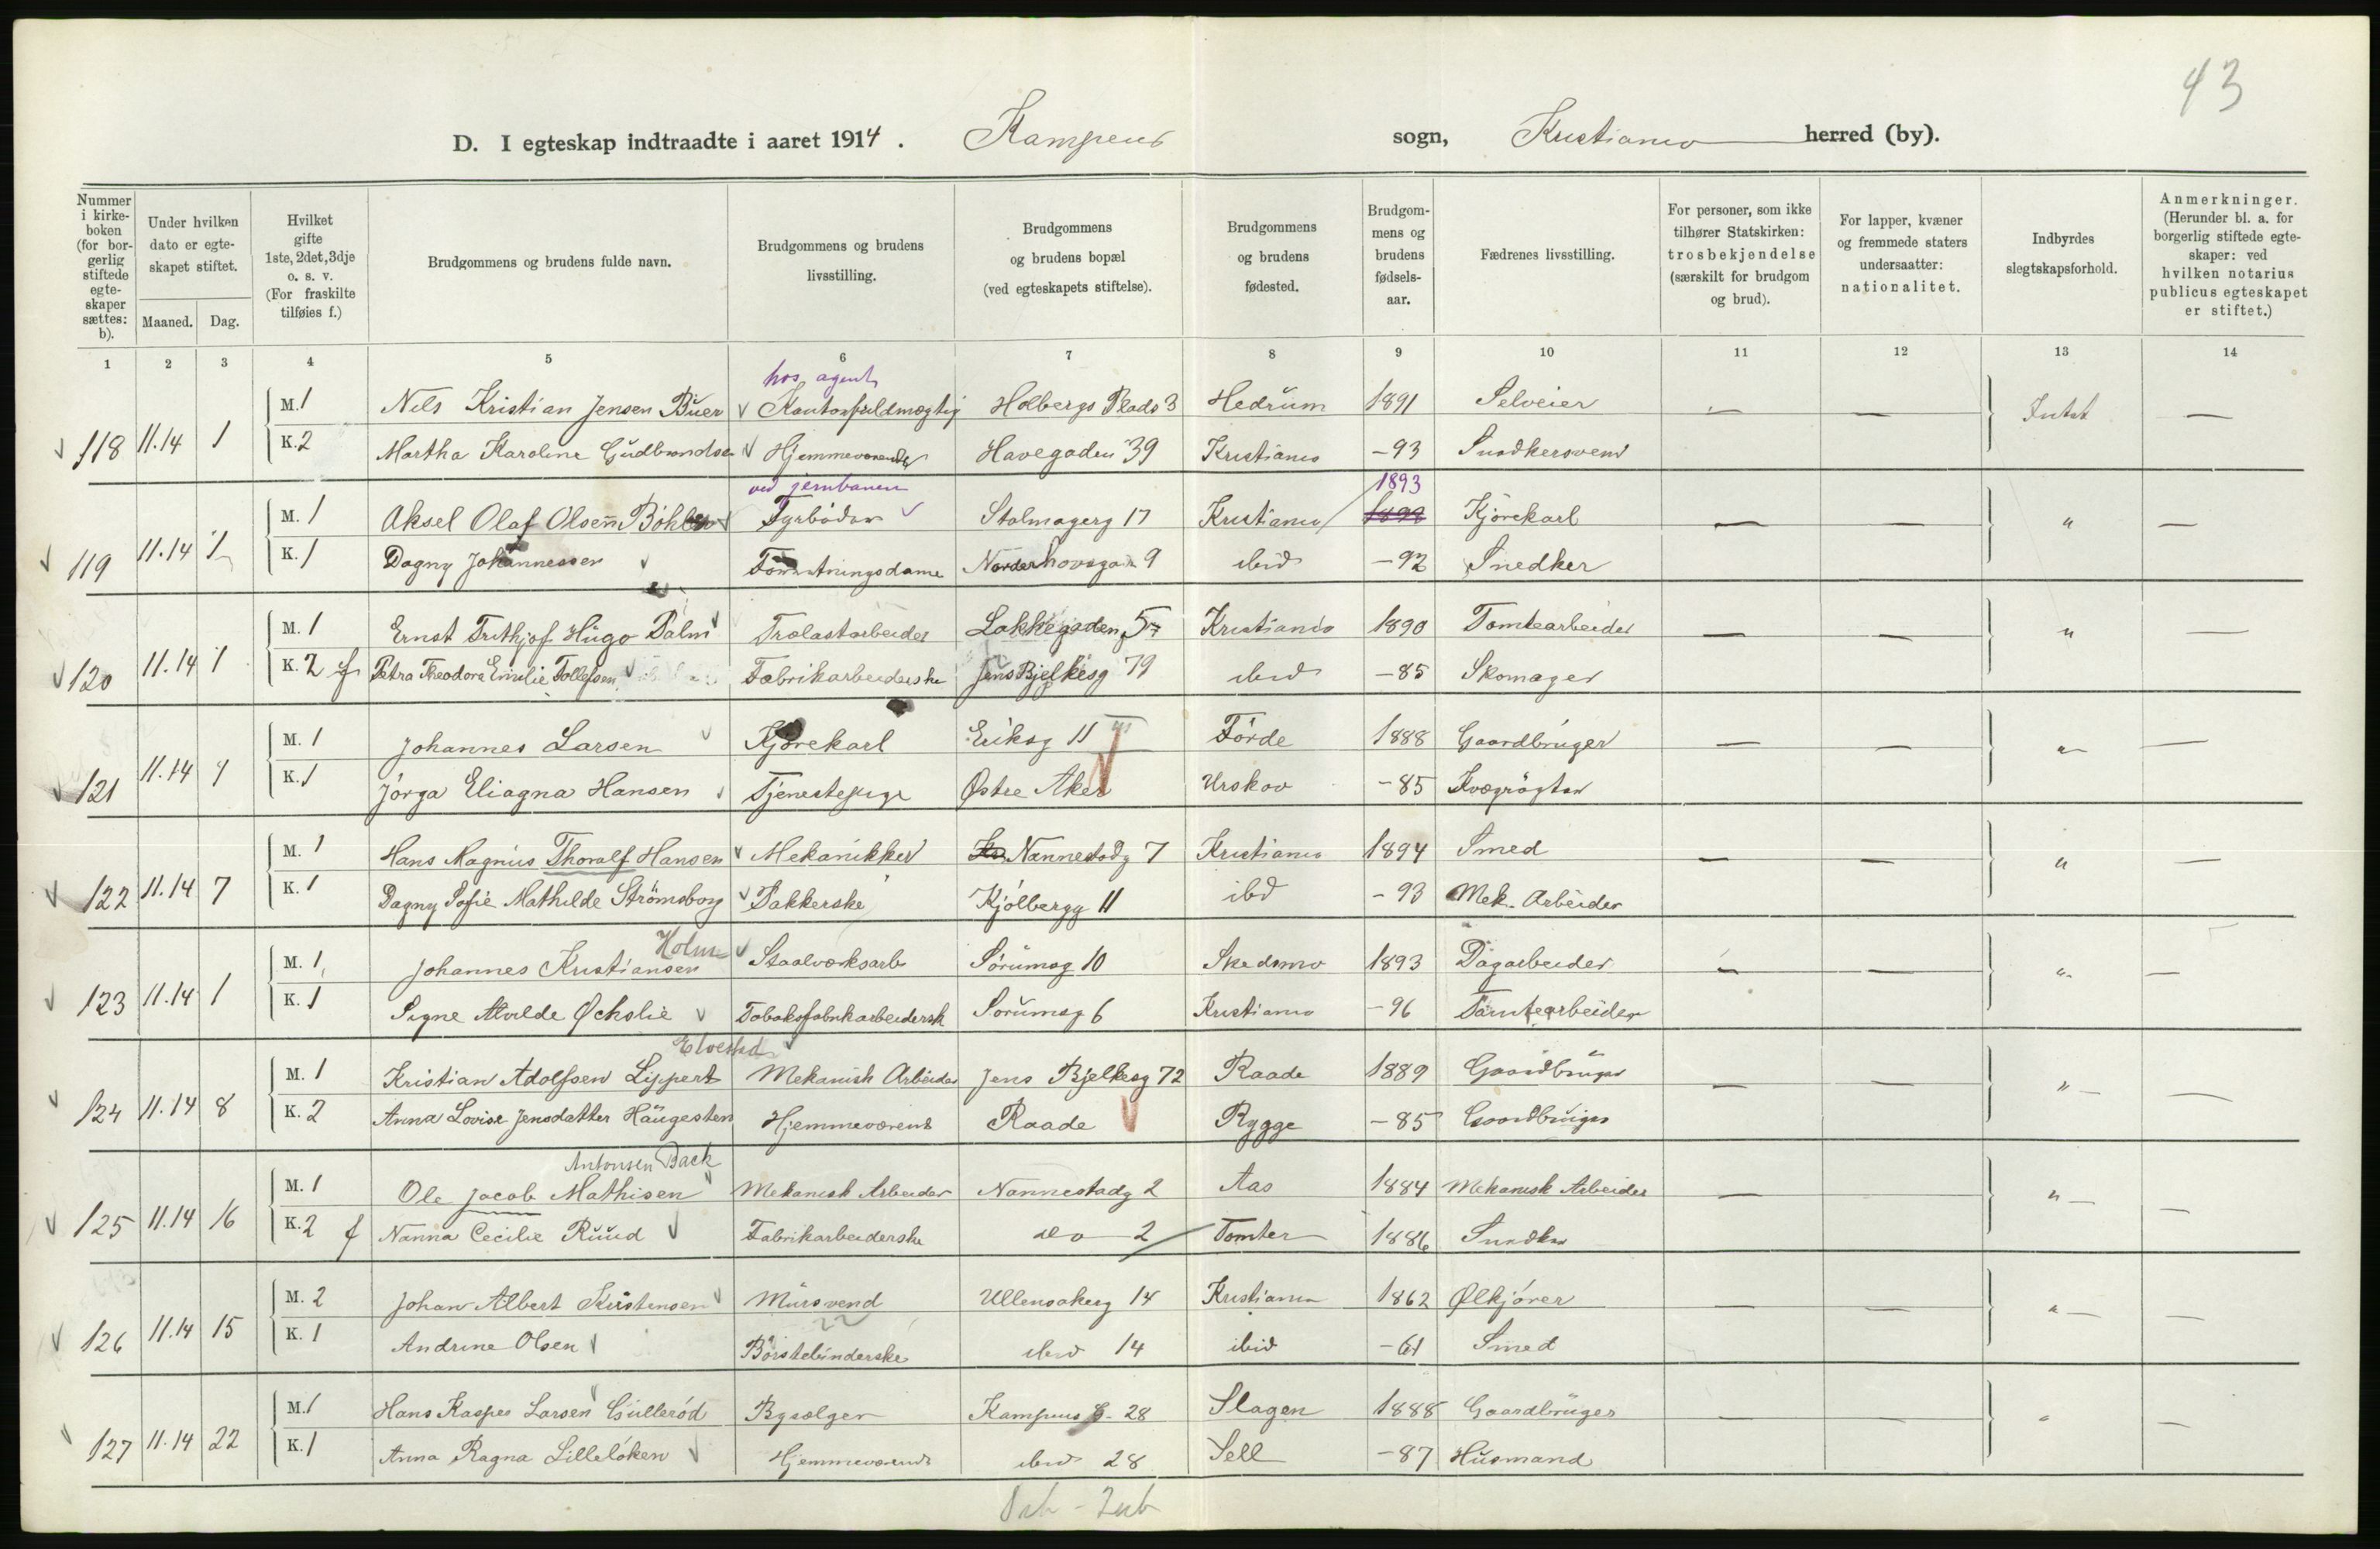 43
D. I egteskap indtraadte i aaret 1914. Kampens sogn, Kristiania herred (by).
Nummer i kirkeboken (for borgerlig stiftede egteskaper sættes: b).
Under hvilken dato er egteskapet stiftet.
Maaned. Dag.
Hvilket gifte 1ste, 2det, 3dje o. s. v. (For fraskilte tilføies f.)
Brudgommens og brudens fulde navn.
Brudgommens og brudens livsstilling.
Brudgommens og brudens bopæl (ved egteskapets stiftelse).
Brudgommens og brudens fødested.
Brudgommens og brudens fødselsaar.
Fædrenes livsstilling.
For personer, som ikke tilhører Statskirken: trosbekjendelse (særskilt for brudgom og brud).
For lapper, kvæner og fremmede staters undersaatter: nationalitet.
Indbyrdes slegtskapsforhold.
Anmerkninger. (Herunder bl. a. for borgerlig stiftede egteskaper: ved hvilken notarius publicus egteskapet er stiftet.)
1 2 3 4 5 6 7 8 9 10 11 12 13 14
hos agent
118 11.14 1 M. 1 Nils Kristian Jensen Buer Kontorfuldmægtig Holbergs Plads 3 Hedrum 1891 Selveier — — Intet —
K. 2 Martha Karoline Gudbrandsen Hjemmeværende Havegaden 39 Kristiania -93 Snedkersvend
ved jernbanen 1893
119 11.14 1 M. 1 Aksel Olaf Olsen Böhler Fyrböder Stalmagerg 17 Kristiania 1898 Kjörekarl — — " —
K. 1 Dagny Johannessen Forretningsdame Norderhovsgaden 9 ibid -92 Snedker
120 11.14 1 M. 1 Ernst Frithjof Hugo Palm Trælastarbeider Lakkegaden 57 Kristiania 1890 Tomtearbeider — — " —
K. 2 f Petra Theodora Emilie Tollefsen Fabrikarbeiderske Jens Bjelkesg 79 ibid -85 Skomager
121 11.14 1 M. 1 Johannes Larsen Kjörekarl Eriksg 11 Förde 1888 Gaardbruger — — " —
K. 1 Jörga Eliagna Hansen Tjenestepige Østre Aker Urskov -85 Kvægrögter
122 11.14 7 M. 1 Hans Magnus Thoralf Hansen Mekanikker Nannestadg 7 Kristiania 1894 Smed — — " —
K. 1 Dagny Sofie Mathilde Strömsborg Pakkerske Kjölbergg 11 ibd -93 Mek. Arbeider
Holm
123 11.14 1 M. 1 Johannes Kristiansen Staalverksarb Sörumsg 10 Skedsmo 1893 Dagarbeider — — " —
K. 1 Signe Alvilde Ócholie Tobaksfabrikarbeidersk Sörumsg 6 Kristiania -96 Tomtearbeider
Elvestad
124 11.14 8 M. 1 Kristian Adolfsen Lippert Mekanisk Arbeider Jens Bjelkesg 72 Raade 1889 Gaardbruger — — " —
K. 2 Anna Lovise Jensdatter Haugesten Hjemmeværende Raade Rygge -85 Gaardbruger
Antonsen Back
125 11.14 16 M. 1 Ole Jacob Mathisen Mekanisk Arbeider Nannestadg 2 Aas 1884 Mekanisk Arbeider — — " —
K. 2 f Nanna Cecilie Ruud Fabrikarbeiderske do 2 Tomter 1886 Snedker
126 11.14 15 M. 2 Johan Albert Kristensen Mursvend Ullensakerg 14 Kristiania 1862 Ølkjörer — — " —
K. 1 Andrine Olsen Börstebinderske ibid 14 ibid -61 Smed
127 11.14 22 M. 1 Hans Kasper Larsen Gulleröd Bysælger Kampens G. 28 Slagen 1888 Gaardbruger — — " —
K. 1 Anna Ragna Lillelöken Hjemmeværende ibid 28 Sell -87 Husmand